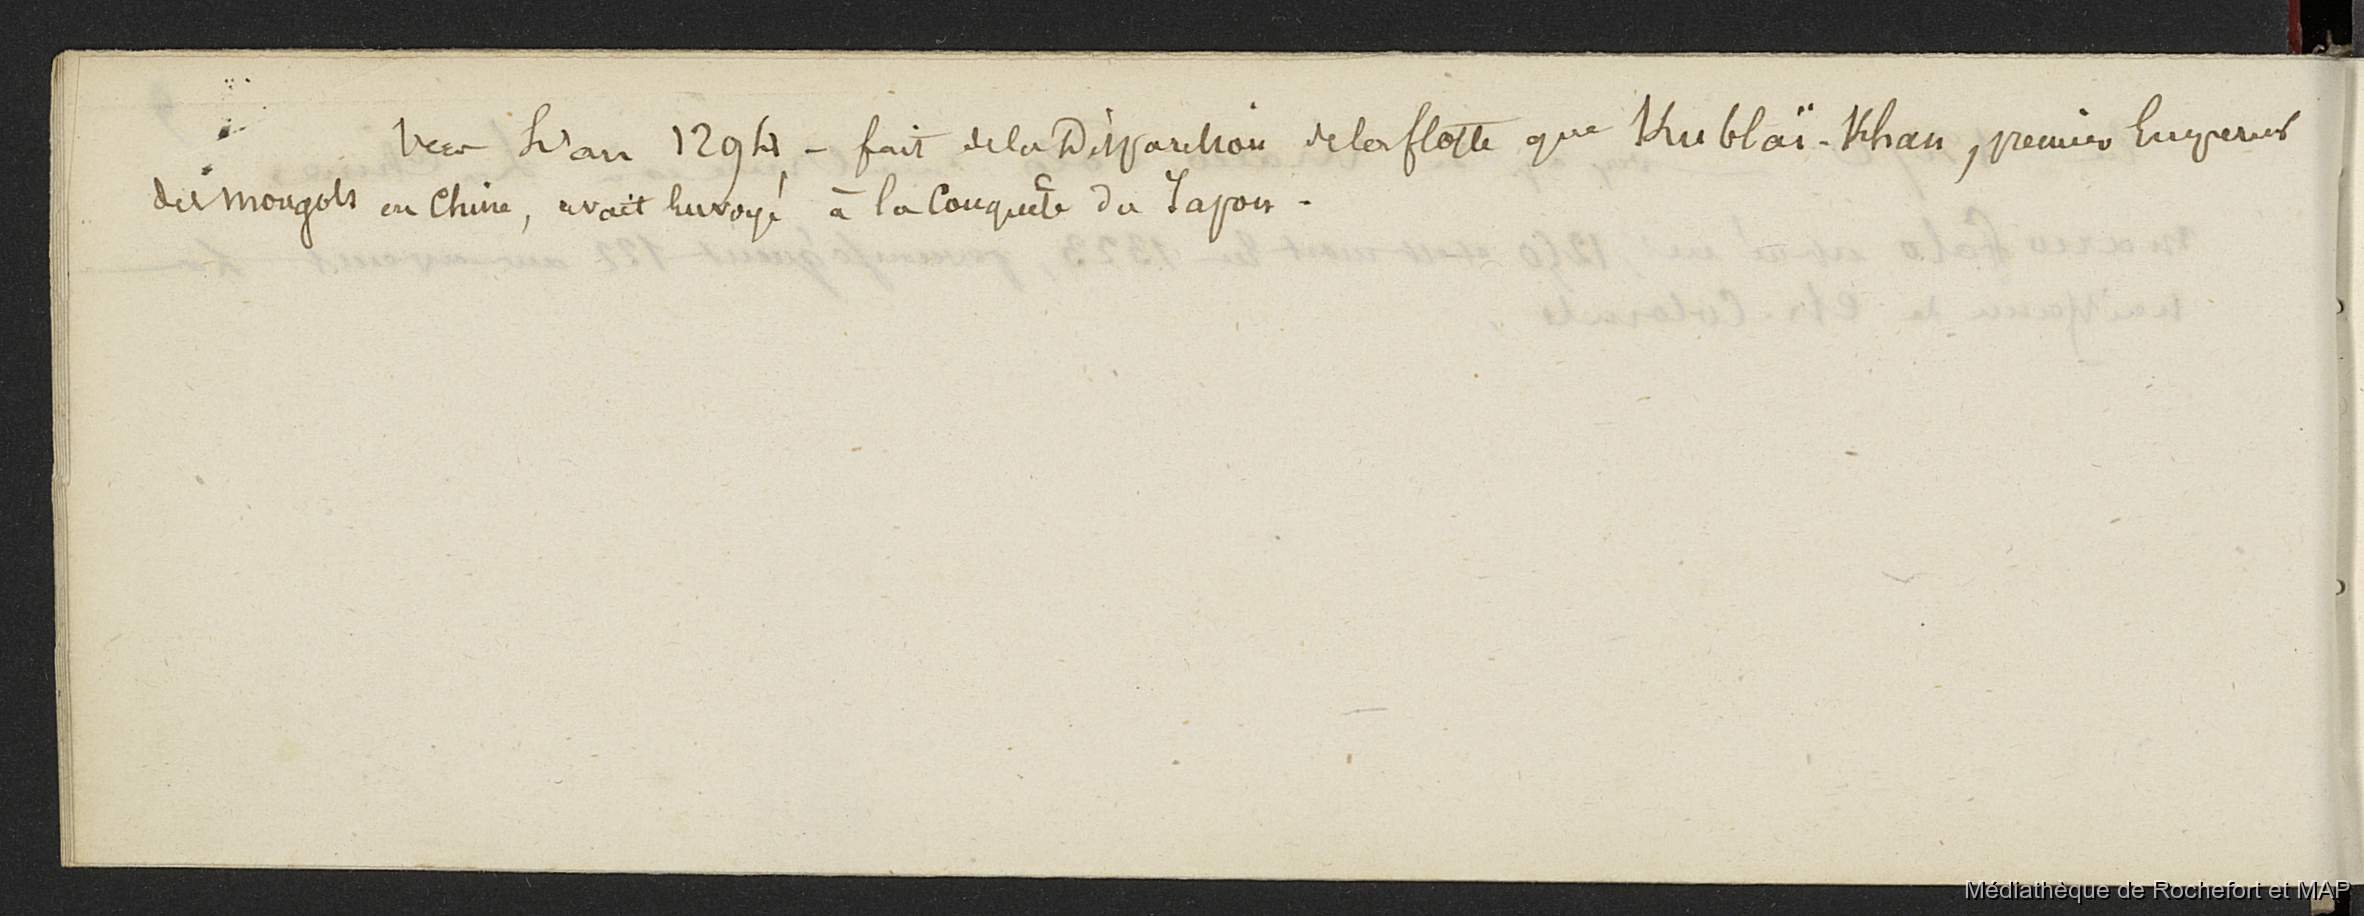 Vers L'an 1294 - fait de la Disparition de la flotte que Kublaï-Khan, premier Empereur
des mongols en Chine, avait Envoyé à la Conquête du Japon -
Médiathèque de Rochefort et MAP